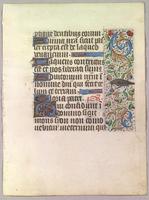 dentibus eorum
Anima nra sicut pas
ser erepta est de laqueo
venantium
Laqueus contritus
est et nos liberati sumus
Adiutorium nrm i
nomine dni qui fecit ce
lum et terram
Gloria patri
Qui confidunt in
domino sicut
mons sion non como
vebitur in eternum qui